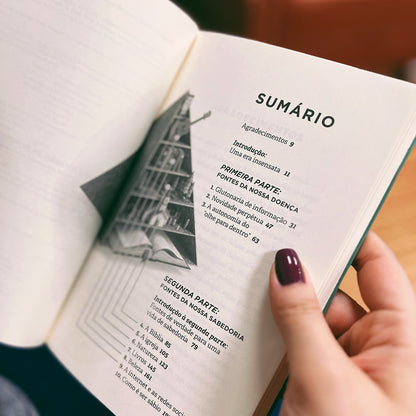 SUMÁRIO
Agradecimentos 9
Introdução:
Uma era insensata 11
PRIMEIRA PARTE:
FONTES DA NOSSA DOENÇA
1. Glutonaria de informação 31
2. Novidade perpétua 47
3. A autonomia do
"olhe para dentro" 63
SEGUNDA PARTE:
FONTES DA NOSSA SABEDORIA
Introdução à segunda parte:
Fontes de verdade para uma
vida de sabedoria 79
4. A Bíblia 85
5. A igreja 105
6. Natureza 123
7. Livros 145
8. Beleza 161
9. A internet e as redes sociais
10. Como é ser sábio